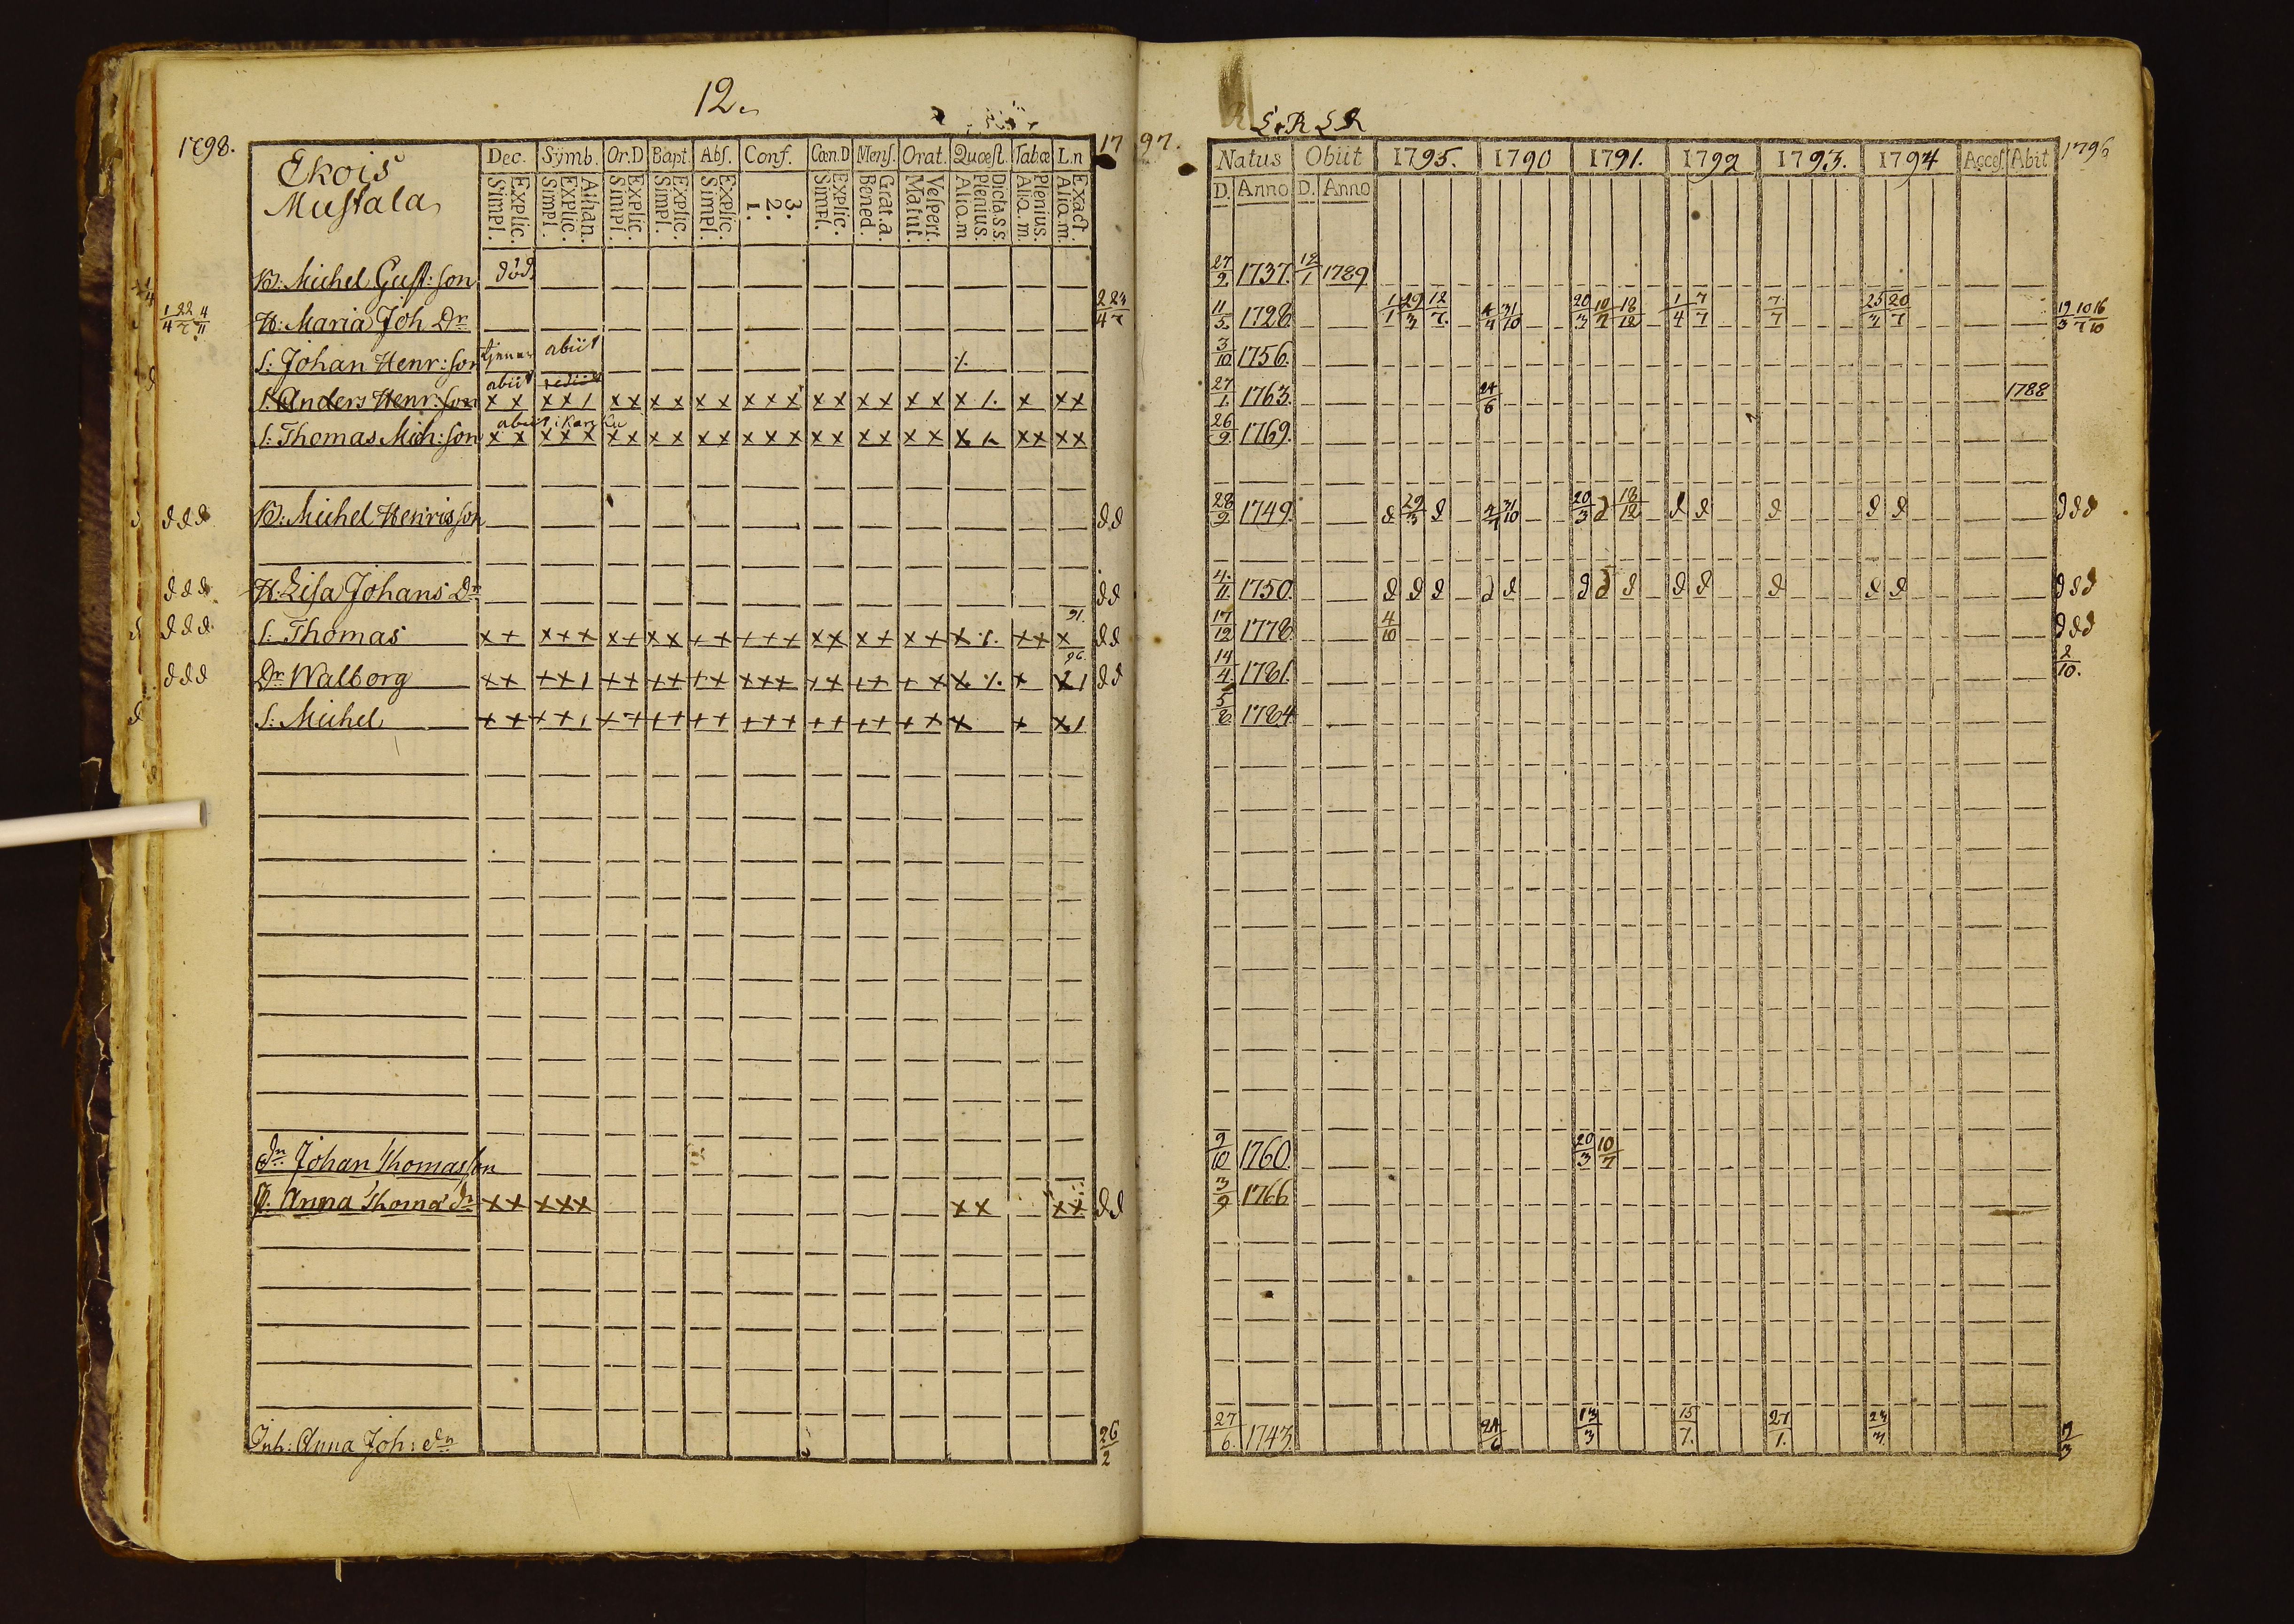 12.
1798.
Ekois
Mustala
Dec. Symb. Or.D Bapt. Abs. Conf. Cœn.D Mens. Orat. Quæst. Tabœ L.n
Explic. Simpl. Athan. Explic. Simpl. Explic. Simpl. Explic. Simpl. Explic. Simpl. 3. 2. 1. Explic. Simpl. Grat. a. Bened. Vespert. Matut. Dicta.s.s. Plenius. Aliq.m Plenius. Aliq.m. Exact. Aliq.m.
17 97.
B: Michel Gust: son död
H: Maria Joh Dr
1/4 22/7 4/11
2/4 23/7
S: Johan Henr: son tjenar abiit ·/.
S: Anders Henr: son abiit rediit x x x x 1 x x x x x x x x x x x x x x x x 1. x x x
S: Thomas Mich: son abiit x x x x x x x x x x x x x x x x x x x x x x x x x x
B: Michel Henrisson
d d d
d d
H: Lisa Johans Dr
d d d
d d
S: Thomas x x x x x x x x x x x x x x x x x x x x x x ·/. x x x 91.
d d d
d d
Dr Walborg x x x x 1 x x x x x x x x x x x x x x x x ·/. x x 1 96.
d d d
d d
S: Michel x x x x 1 x x x x x x x x x x x x x x x x x x x 1
Dn Johan Thomasson
Anna Thoma dr x x x x x x x x x
d d
Inh: Anna Joh: dn
26/2
R S R S R
Natus Obiit 1795. 1790 1791. 1792 1793. 1794 Acces. Abit 1796
D. Anno D. Anno
27/9. 1737. 12/1 1789
11/5. 1728 1/1 29/3 12/7. 4/4 31/10 20/3 10/7 18/12 1/4 7/7 7/7 25/3 20/7 19/3 10/7 16/10
3/10 1756.
27/1. 1763. 24/6 1788
26/9. 1769.
28/9 1749. d 29/3 d 4/4 31/10 20/3 d 18/12 d d d d d d d d
4./11. 1750. d d d d d d d d d d d d d d d d
17/12 1778. 4/10 d d d
14/4 1781. 2/10.
5/8 1784
9/10 1760. 20/3 10/7
3/9 1766
27/6. 1743. 24/6 13/3 15/7. 27/1. 23/3. 7/3